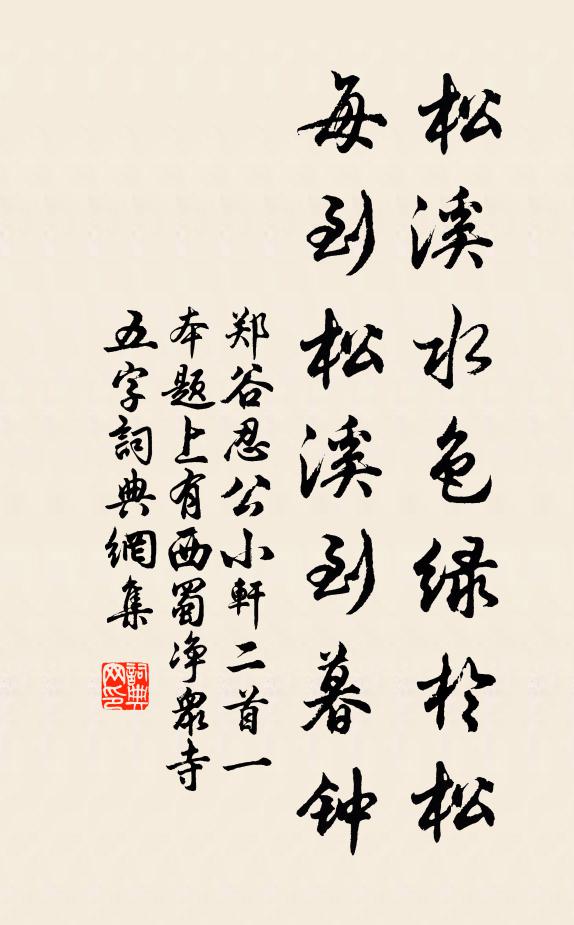 松溪水色绿於松
每到松溪到暮钟
郑谷忍公小軒二首一
本题上有西蜀净衆寺
五字詞典網集
詞典
网印